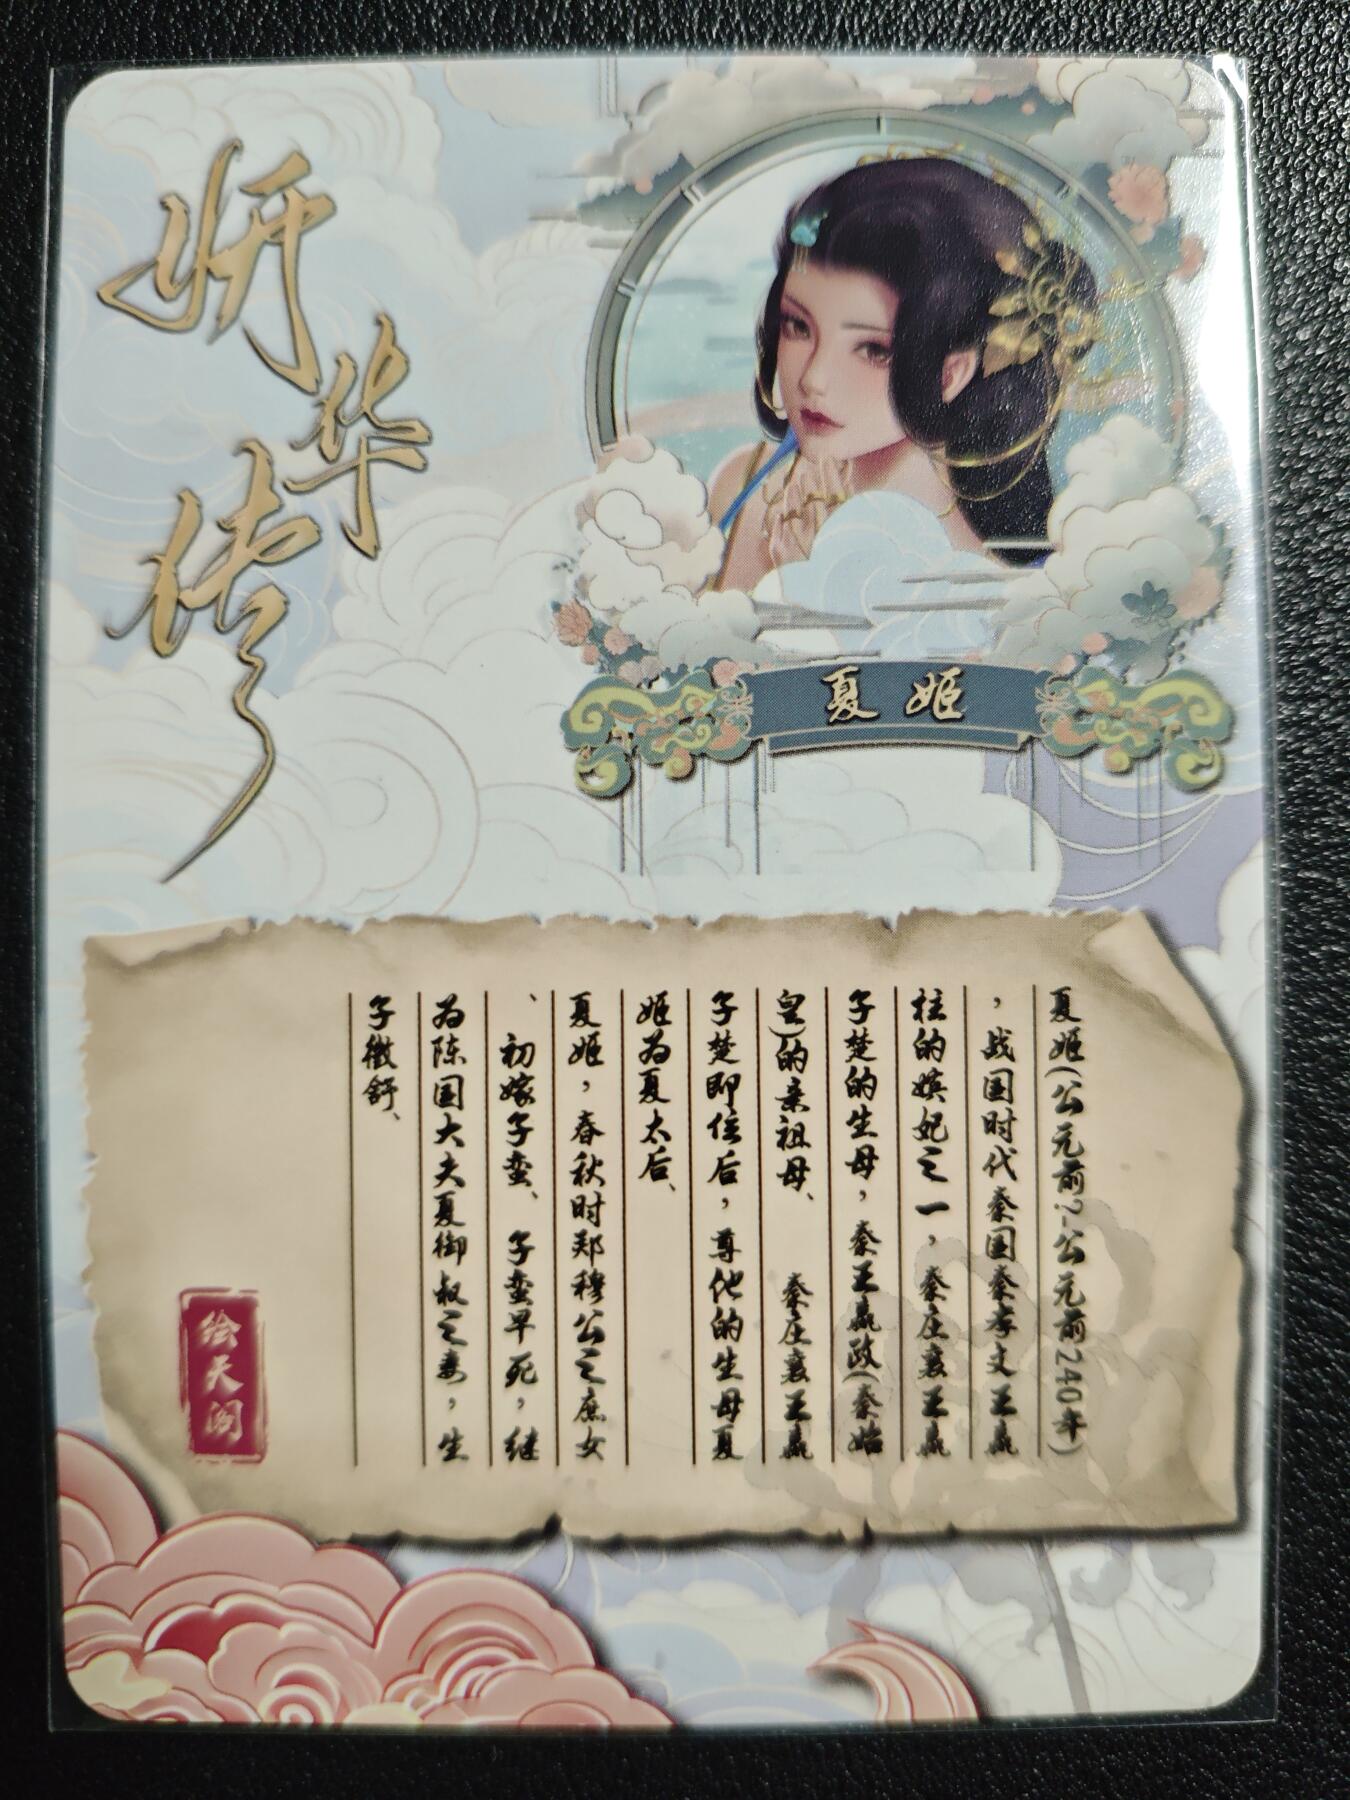 妍华传
夏姬
夏姬(公元前?-公元前240年)
，战国时代秦国秦孝文王嬴
柱的嫔妃之一，秦庄襄王嬴
子楚的生母，秦王嬴政(秦始
皇)的亲祖母、 秦庄襄王嬴
子楚即位后，尊他的生母夏
姬为夏太后、
夏姬，春秋时郑穆公之庶女
、初嫁子蛮、子蛮早死，继
为陈国大夫夏御叔之妻，生
子徵舒、
绘天阁